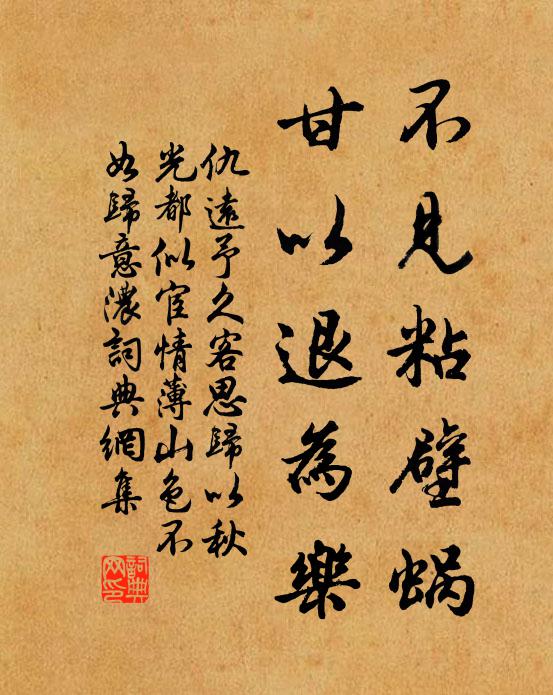 不見粘壁蝸
甘以退為樂
仇遠予久客思歸以秋
光都似宦情薄山色不
如歸意濃詞典網集
詞典網印